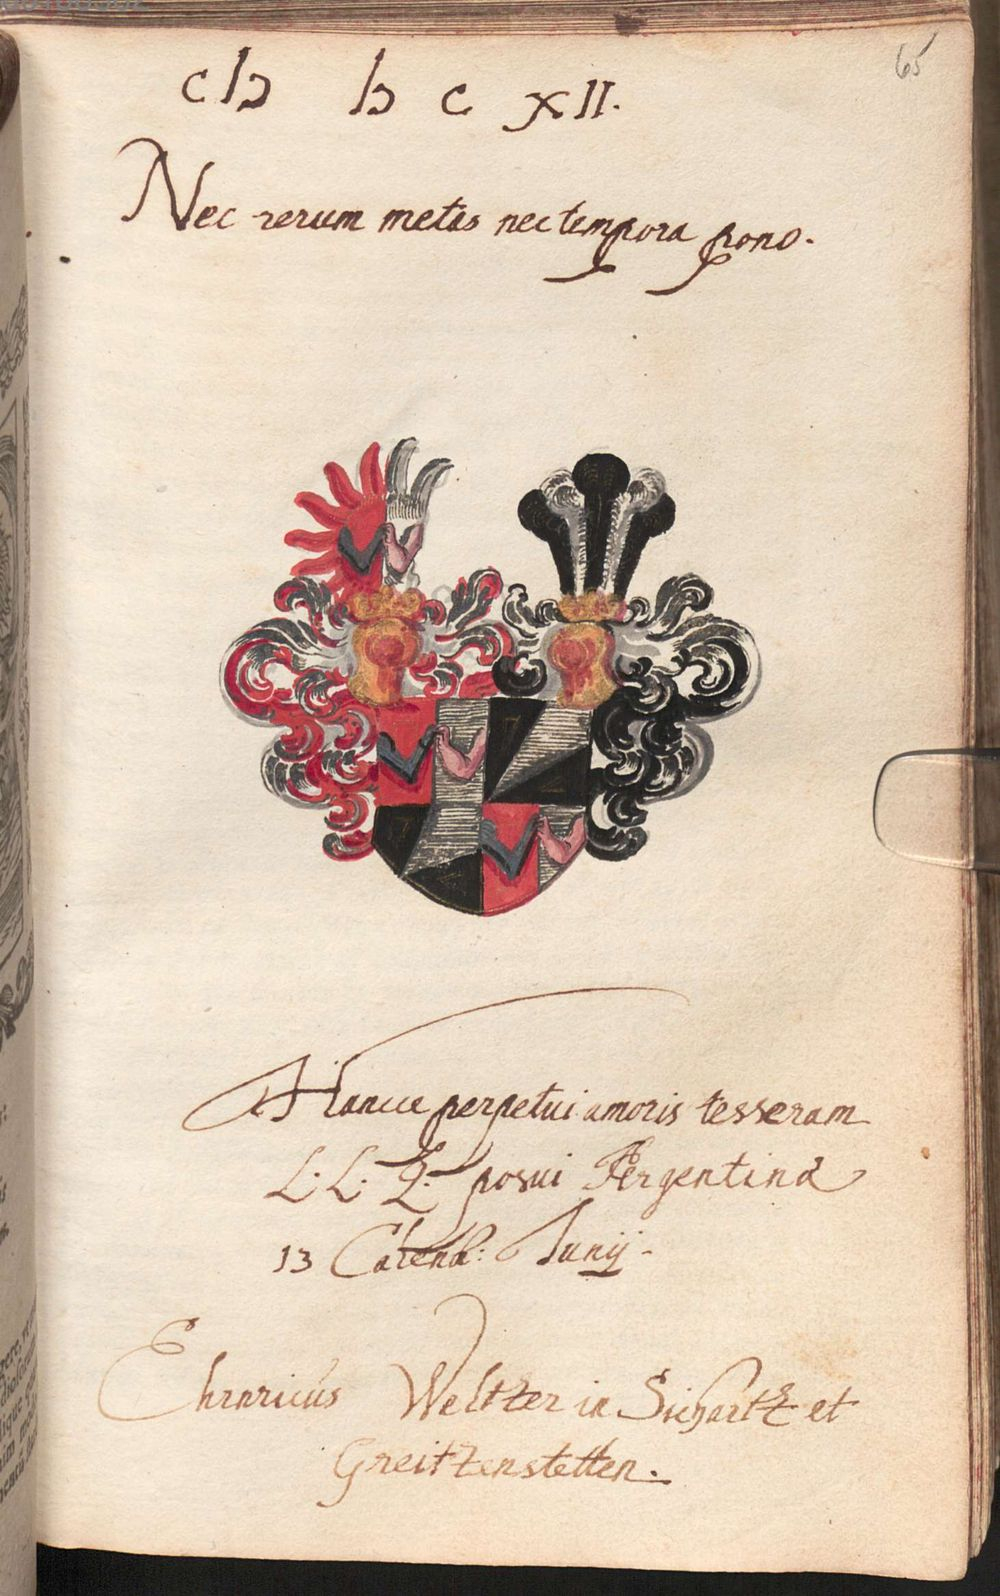 65
cIↄ Iↄ c XII.
Nec rerum metas nec tempora pono.
Hancce perpetui amoris tesseram
L. L. Q. posui Argentinæ
13 Calend: Junij.
Weltzer in et